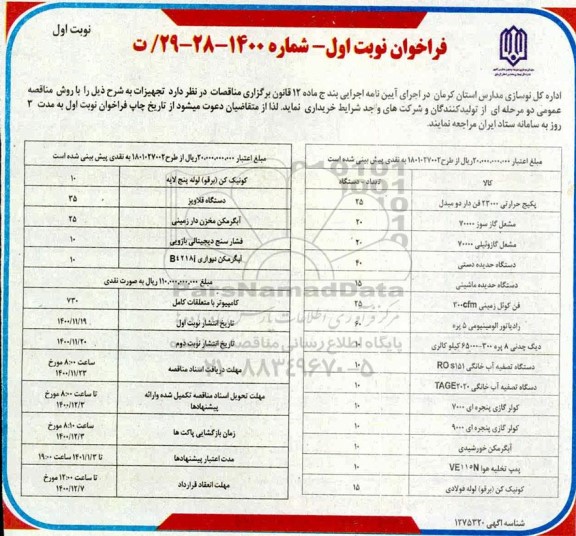 نوبت اول
فراخوان نوبت اول- شماره ۱۴۰۰-۲۸-۲۹/ ت
اداره کل نوسازی مدارس استان کرمان در اجرای آیین نامه اجرایی بند ج ماده ۱۲ قانون برگزاری مناقصات در نظر دارد تجهیزات به شرح ذیل را با روش مناقصه
عمومی دو مرحله ای از تولیدکنندگان و شرکت های واجد شرایط خریداری نماید. لذا از متقاضیان دعوت میشود از تاریخ چاپ فراخوان نوبت اول به مدت ۳
روز به سامانه ستاد ایران مراجعه نمایند.
مبلغ اعتبار ۲۰,۰۰۰,۰۰۰,۰۰۰ریال از طرح۱۸۰۱۰۲۷۰۰۲ به نقدی پیش بینی شده است
کالا تعداد - دستگاه
پکیج حرارتی ۲۳۰۰۰ فن دار دو مبدل ۲۵
مشعل گاز سوز ۷۰۰۰۰ ۲۰
مشعل گازوئیلی ۷۰۰۰۰ ۲۰
دستگاه حدیده دستی ۴۰
دستگاه حدیده ماشینی ۱۵
فن کوئل زمینی ۳۰۰cfm ۲۵
رادیاتور آلومینیومی ۵ پره ۶۰
دیگ چدنی ۸ پره ۳۰۰-۶۵۰۰۰ کیلو کالری ۱۰
دستگاه تصفیه آب خانگی RO s۱۵۱ ۱۰
دستگاه تصفیه آب خانگی TAGE۲۰۲۰ ۱۰
کولر گازی پنجره ای ۷۰۰۰ ۱۰
کولر گازی پنجره ای ۹۰۰۰ ۱۰
آبگرمکن خورشیدی ۱۰
پمپ تخلیه هوا VE۱۱۵N ۱۰
کونیک کن (برقو) لوله فولادی ۱۵
مبلغ اعتبار ۲۰,۰۰۰,۰۰۰,۰۰۰ریال از طرح۱۸۰۱۰۲۷۰۰۲ به نقدی پیش بینی شده است
کونیک کن (برقو) لوله پنج لایه ۱۰
دستگاه قلاویز ۳۵
آبگرمکن مخزن دار زمینی ۲۵
فشار سنج دیجیتالی بازویی ۱۰
آبگرمکن دیواری B۴۲۱۸i ۱۰
مبلغ ۱۱۰,۰۰۰,۰۰۰,۰۰۰ ریال به صورت نقدی
کامپیوتر با متعلقات کامل ۷۳۰
تاریخ انتشار نوبت اول ۱۴۰۰/۱۱/۱۹
تاریخ انتشار نوبت دوم ۱۴۰۰/۱۱/۲۰
مهلت دریافت اسناد مناقصه ساعت ۸:۰۰ مورخ ۱۴۰۰/۱۱/۲۳
مهلت تحویل اسناد مناقصه تکمیل شده وارائه پیشنهادها تا ساعت ۸:۰۰ مورخ ۱۴۰۰/۱۲/۳
زمان بازگشایی پاکت ها ساعت ۸:۱۰ مورخ ۱۴۰۰/۱۲/۳
مدت اعتبار پیشنهادها تا ۱۴۰۱/۱/۳ ساعت ۱۹:۰۰
مهلت انعقاد قرارداد تا ساعت ۱۲:۰۰ مورخ ۱۴۰۰/۱۲/۷
ParsNamadData
پایگاه اطلاع رسانی مناقصه
۰۲۱-۸۸۳۴۹۶۷۰-۵
شناسه آگهی ۱۲۷۵۳۲۰